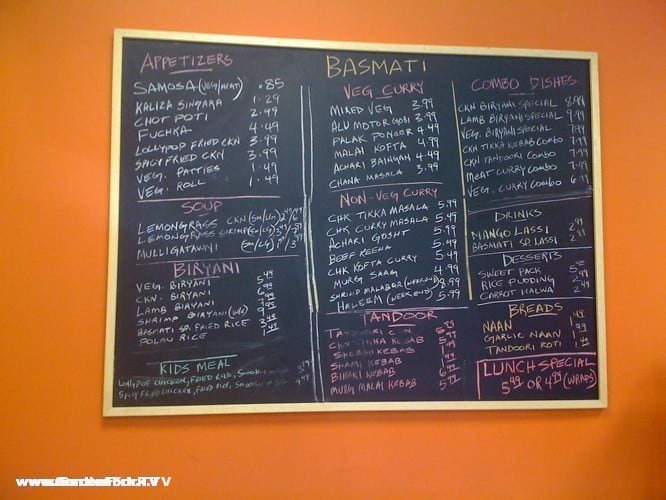 BASMATI
APPETIZERS
SAMOSA (VEG/MEAT) .85
KALIZA SINGARA 1.29
CHOT POTI 2.99
FUCHKA 4.49
LOLLYPOP FRIED CKN 3.99
SPICY FRIED CKN 3.99
VEG. PATTIES 1.49
VEG. ROLL 1.49
SOUP
LEMONGRASS CKN (SM/LG)
LEMONGRASS SHRIMP (SM/LG)
MULLIGATAWNI (SM/LG)
BIRYANI
VEG. BIRYANI 5.49
CKN. BIRYANI 6.99
LAMB BIRYANI 7.99
SHRIMP BIRYANI
BASMATI SP. FRIED RICE 3.49
POLAU RICE 1.49
KIDS MEAL
LOLLYPOP CHICKEN, FRIED RICE,
SPICY FRIED CHICKEN, FRIED RICE,
VEG CURRY
MIXED VEG 3.99
ALU MOTOR GOBI 3.99
PALAK PONEER 4.49
MALAI KOFTA 4.99
ACHARI BAINGAN 4.49
CHANA MASALA 3.99
NON-VEG CURRY
CHK TIKKA MASALA 5.99
CHK CURRY MASALA 5.99
ACHARI GOSHT 5.99
BEEF REENA 5.49
CHK KOFTA CURRY 5.49
MURG SAAG 4.99
SHRIMP MALABAR (WEEKEND) 8.99
HALEEM (WEEKEND) 5.99
TANDOOR
TANDOORI CKN
CKN TIKKA KEBAB 5.99
SHEEKH KEBAB
SHAMI KEBAB
BIHARI KEBAB 6.99
MURG MALAI KEBAB 5.99
COMBO DISHES
CKN BIRYANI SPECIAL 8.99
LAMB BIRYANI SPECIAL 9.99
VEG. BIRYANI SPECIAL 7.49
CKN TIKKA KEBAB COMBO 7.99
CKN TANDOORI COMBO 7.99
MEAT CURRY COMBO 7.49
VEG. CURRY COMBO 6.99
DRINKS
MANGO LASSI 2.99
BASMATI SP. LASSI 2.99
DESSERTS
SWEET PACK
RICE PUDDING 2.99
CARROT HALWA 2.49
BREADS
NAAN
GARLIC NAAN 1.99
TANDOORI ROTI 1.49
LUNCH SPECIAL
5.99 OR 4.99 (WRAPS)